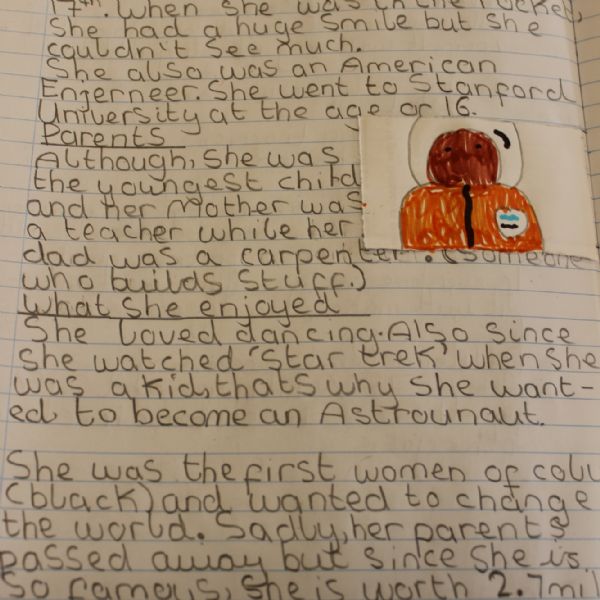 7th. When she was in the rocket,
she had a huge smile but she
couldn't see much.
She also was an American
Enjerneer. She went to Stanford
University at the age or 16.
Parents
Although, she was
the youngest child
and her Mother was
a teacher while her
dad was a carpenter. (Someone
who builds stuff.)
What she enjoyed
She loved dancing. Also since
she watched 'Star trek' when she
was a kid, thats why she want-
ed to become an Astrounaut.
She was the first women of colu
(black) and wanted to change
the world. Sadly, her parents
passed away but since she is
so famous, she is worth 2.7mil